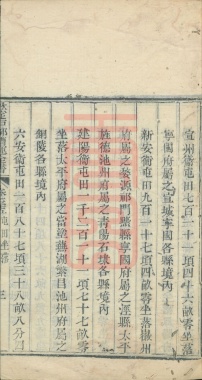 宣州衛屯田七百一十一項四十六畝零坐落
寧國府屬之宣城寧國各縣境內
新安衛屯田九百一十七項四畝零坐落徽州
府屬之婺源祁門黟縣寧國府屬之涇縣太平
旌德池州府屬之青陽石埭各縣境內
建陽衛屯田一千一百二十一項七十七畝零
坐落太平府屬之當塗蕪湖繁昌池州府屬之
銅陵各縣境內
六安衛屯田二百八十七項三十八畝八分